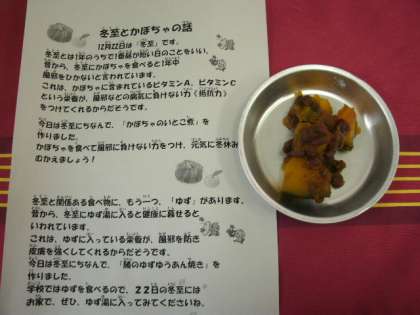 冬至とかぼちゃの話
12月22日は「冬至」です。
冬至とは1年のうちで1番昼が短い日のことをいい、
昔から、冬至にかぼちゃを食べると1年中
風邪をひかないと言われています。
これは、かぼちゃに含まれているビタミンA、ビタミンC
という栄養が、風邪などの病気に負けない力（抵抗力）
をつけてくれるからだそうです。
今日は冬至にちなんで、「かぼちゃのいとこ煮」を
作りました。
かぼちゃを食べて風邪に負けない力をつけ、元気に冬休み
むかえましょう！
冬至と関係ある食べ物に、もう一つ、「ゆず」があります。
昔から、冬至にゆず湯に入ると健康に暮せると
いわれています。
これは、ゆずに入っている栄養が、風邪を防ぎ
皮膚を強くしてくれるからだそうです。
今日は冬至にちなんで、「鰆のゆずゆうあん焼き」を
作りました。
学校ではゆずを食べるので、22日の冬至には
お家で、ぜひ、ゆず湯に入ってみてくださいね。